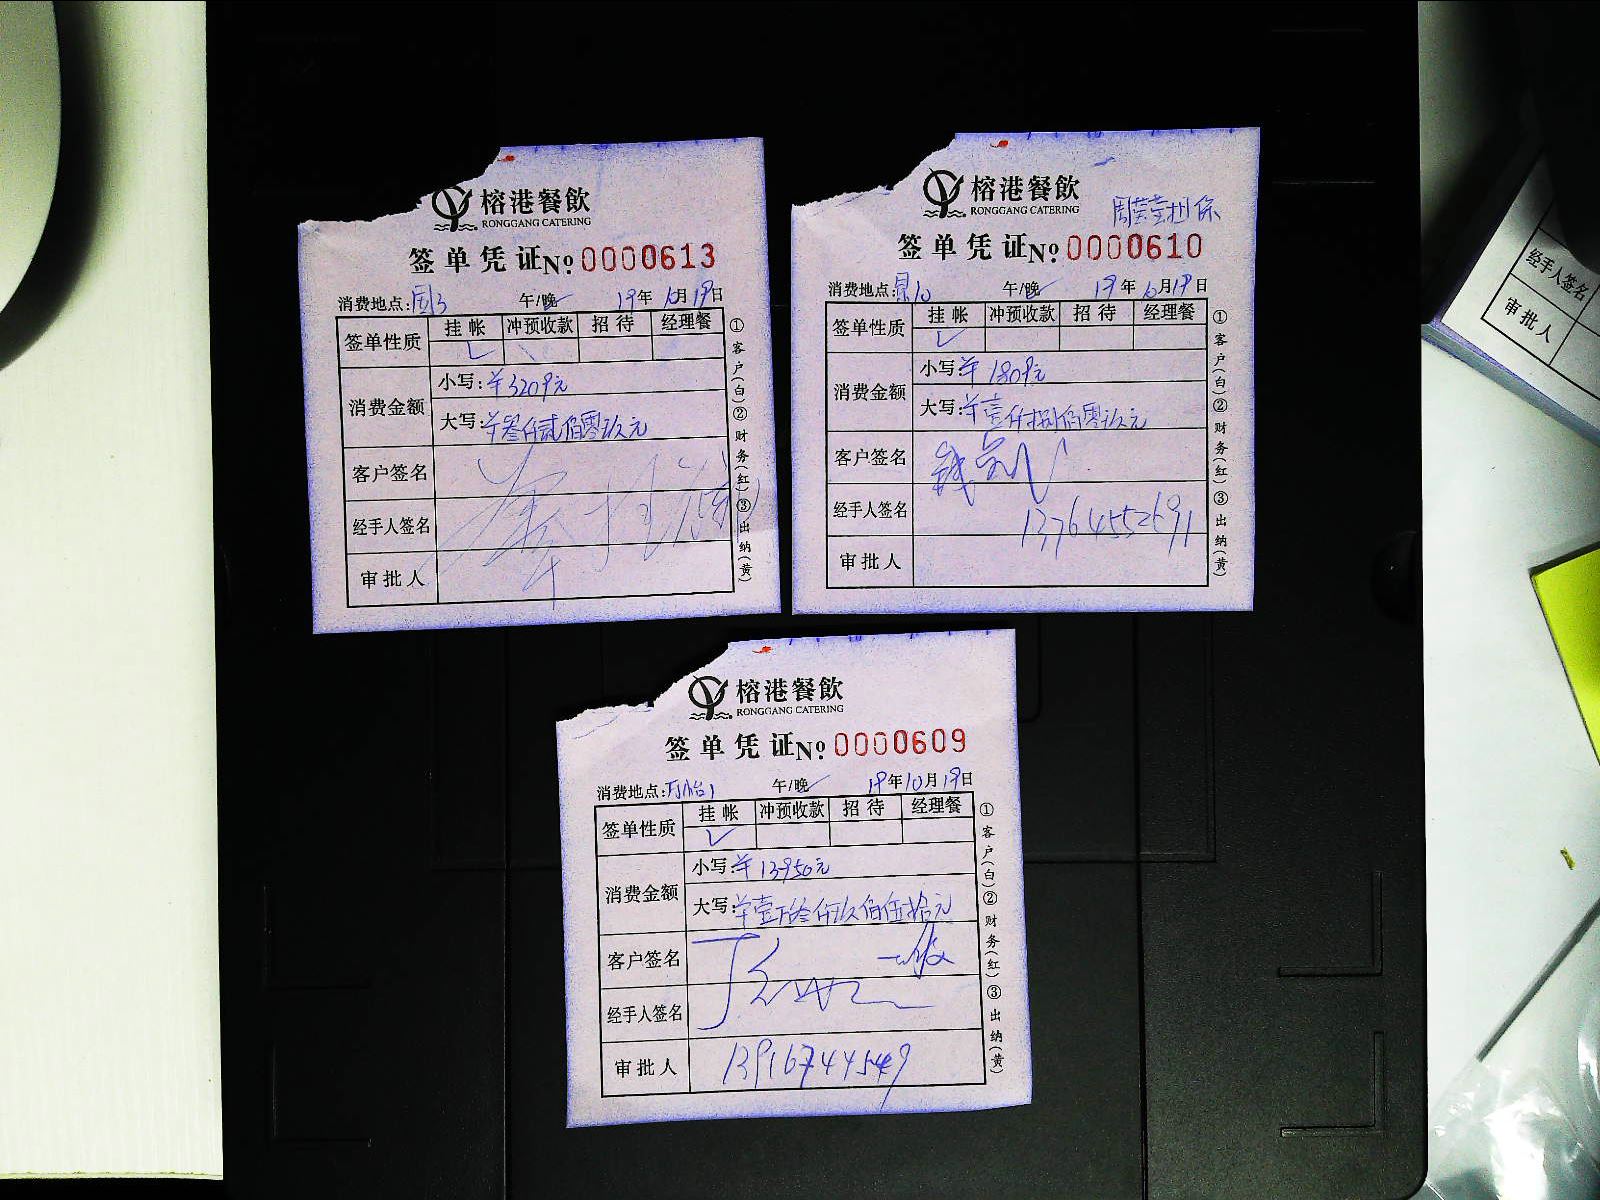 榕港餐飲
RONGGANG CATERING
签单凭证№ 0000613
消费地点: 午/晚 19年10月19日
签单性质 挂帐 冲预收款 招待 经理餐
消费金额
小写:¥3209元
大写:叁仟贰佰零玖元
客户签名
经手人签名
审批人
①客户(白)②财务(红)③出纳(黄)
榕港餐飲
RONGGANG CATERING
担保
签单凭证№ 0000610
消费地点: 午/晚 19年10月19日
签单性质 挂帐 冲预收款 招待 经理餐
消费金额
小写:¥1809元
大写:壹仟捌佰零玖元
客户签名
经手人签名 13764552691
审批人
①客户(白)②财务(红)③出纳(黄)
榕港餐飲
RONGGANG CATERING
签单凭证№ 0000609
消费地点: 午/晚 19年10月19日
签单性质 挂帐 冲预收款 招待 经理餐
消费金额
小写:¥13950元
大写:壹万叁仟玖佰伍拾元
客户签名
经手人签名
审批人 13916744549
①客户(白)②财务(红)③出纳(黄)
经手人签名
审批人